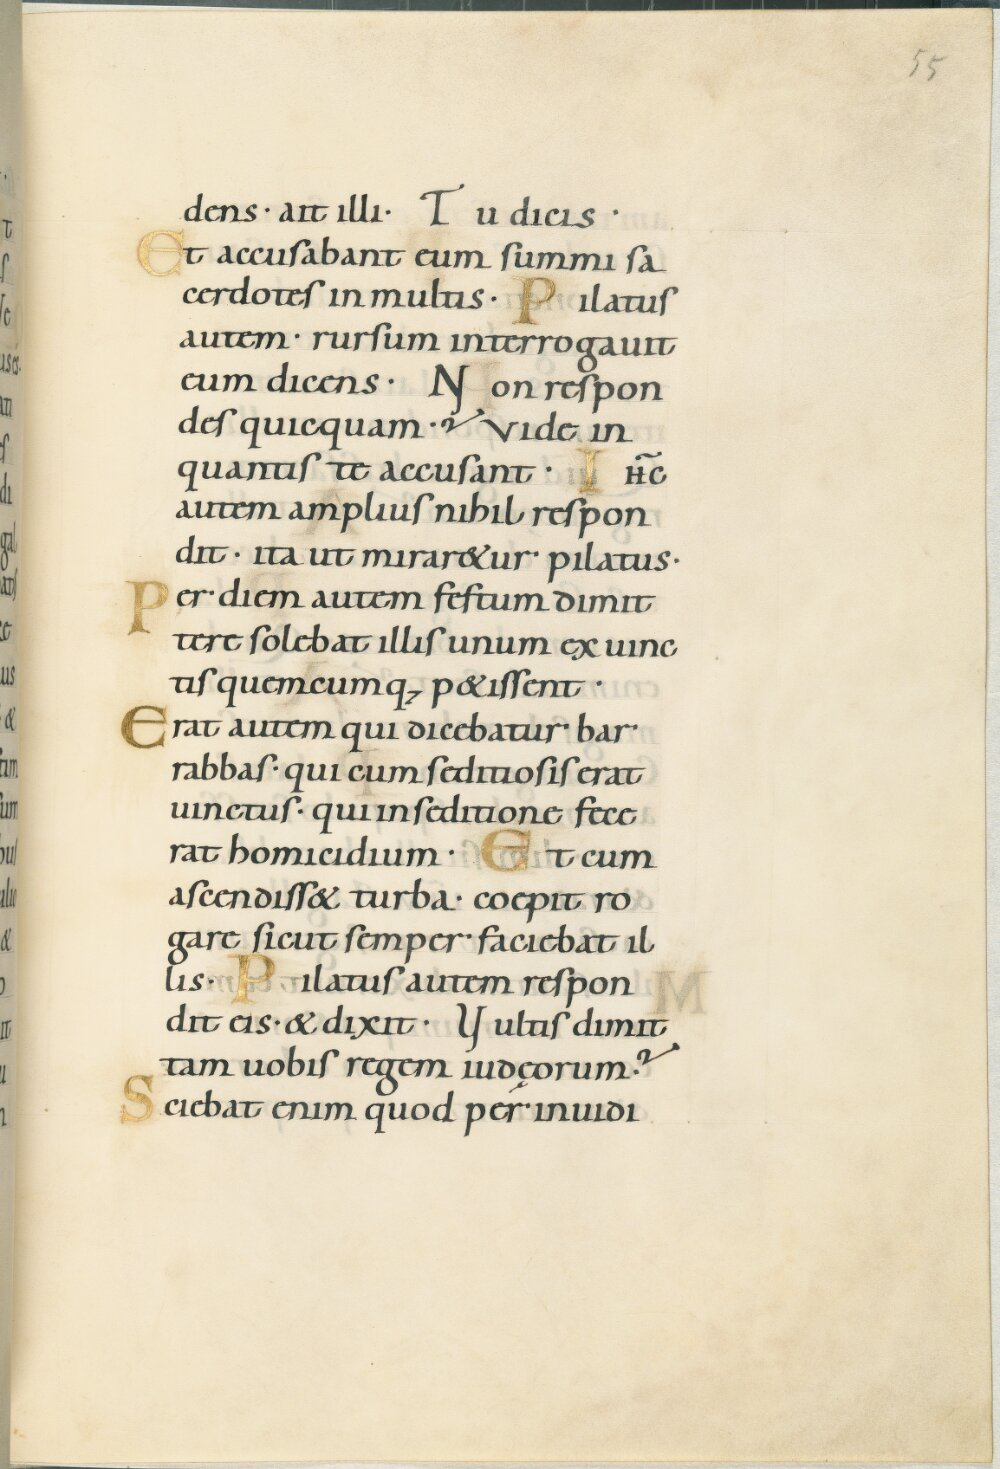 55
dens · ait illi · Tu dicis ·
Et accusabant eum summi sa
cerdotes in multis · Pilatus
autem · rursum interrogauit
eum dicens · Non respon
des quicquam ·? Vide in
quantis te accusant · IH̅C
autem amplius nihil respon
dit · ita ut mirar&ur · pilatus ·
Per diem autem festum dimit
tere solebat illis unum ex uinc
tis quemcumq; p&issent ·
Erat autem qui dicebatur · bar
rabbas · qui cum seditiosis erat
uinctus · qui in seditione fece
rat homicidium · Et cum
ascendiss& turba · coepit ro
gare sicut semper · faciebat il
lis · Pilatus autem respon
dit eis · & dixit · Vultis dimit
tam uobis regem iudęorum ·?
Sciebat enim quod pér · inuidi